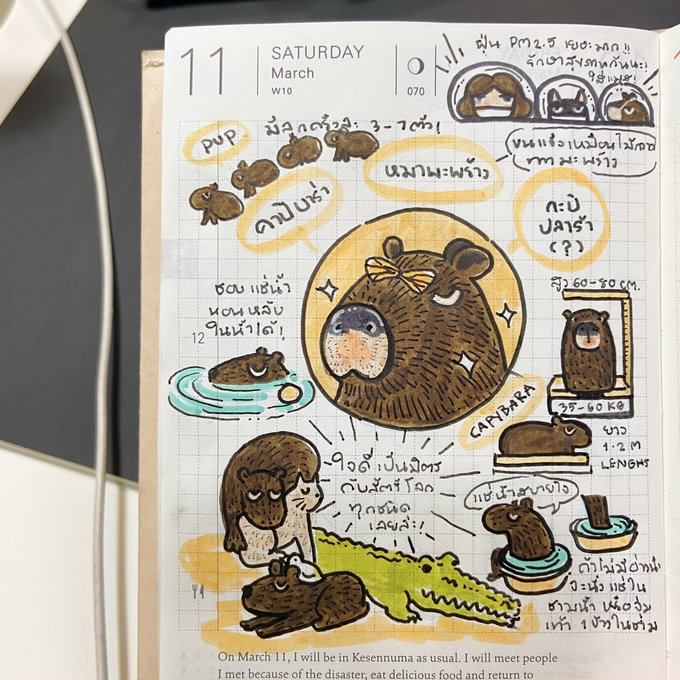 11
SATURDAY
March
W10
070
ฝุ่น PM2.5 เยอะมาก!!
รักษาสุขภาพกันนะ!
ใส่แมส!
pup
มีลูกครั้งละ 3-7 ตัว!
หมามะพร้าว
ขนแข็งเหมือนไม้กวาด
ทางมะพร้าว
คาปิบาร่า
กะปิ
ปลาร้า
(?)
ชอบแช่น้ำ
นอนหลับ
ในน้ำได้!
12
สูง 60-80 cm.
35-60 KG
CAPYBARA
ยาว
1.2 M
LENGHS
ใจดี เป็นมิตร
กับสัตว์โลก
ทุกชนิด
เลยล่ะ!
แช่น้ำสบายใจ
ถ้าไม่มีอ่างน้ำ
จะนั่งแช่ใน
ชามน้ำ หรือจุ่ม
เท้า 1 ข้างในชาม
On March 11, I will be in Kesennuma as usual. I will meet people
I met because of the disaster, eat delicious food and return to